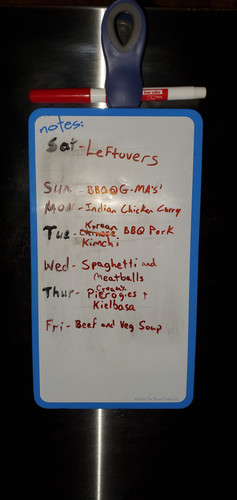 notes:
Sat - Leftovers
SUN - BBQ@G-MA'S'
MON - Indian Chicken Curry
Tue - Korean BBQ Pork
Kimchi
Wed - Spaghetti and
Meatballs
Thur - Creamy
Pierogies +
Kielbasa
Fri - Beef and Veg Soup